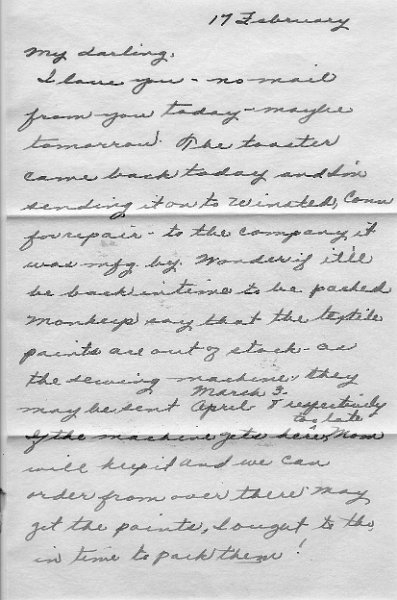 17 February
My darling,
I love you - no mail
from you today - maybe
tomorrow. The toaster
came back today and I'm
sending it on to Winsted, Conn
for repair - to the company it
was mfg by. Wonder if it'll
be back in time to be packed
Monkeys say that the textile
paints are out of stock - as
the sewing machine. they
March 3.
may be sent April 7 respectively
too late
If the machine gets here, Mom
will keep it and we can
order from over there may
get the paints, I ought to tho,
in time to pack them!